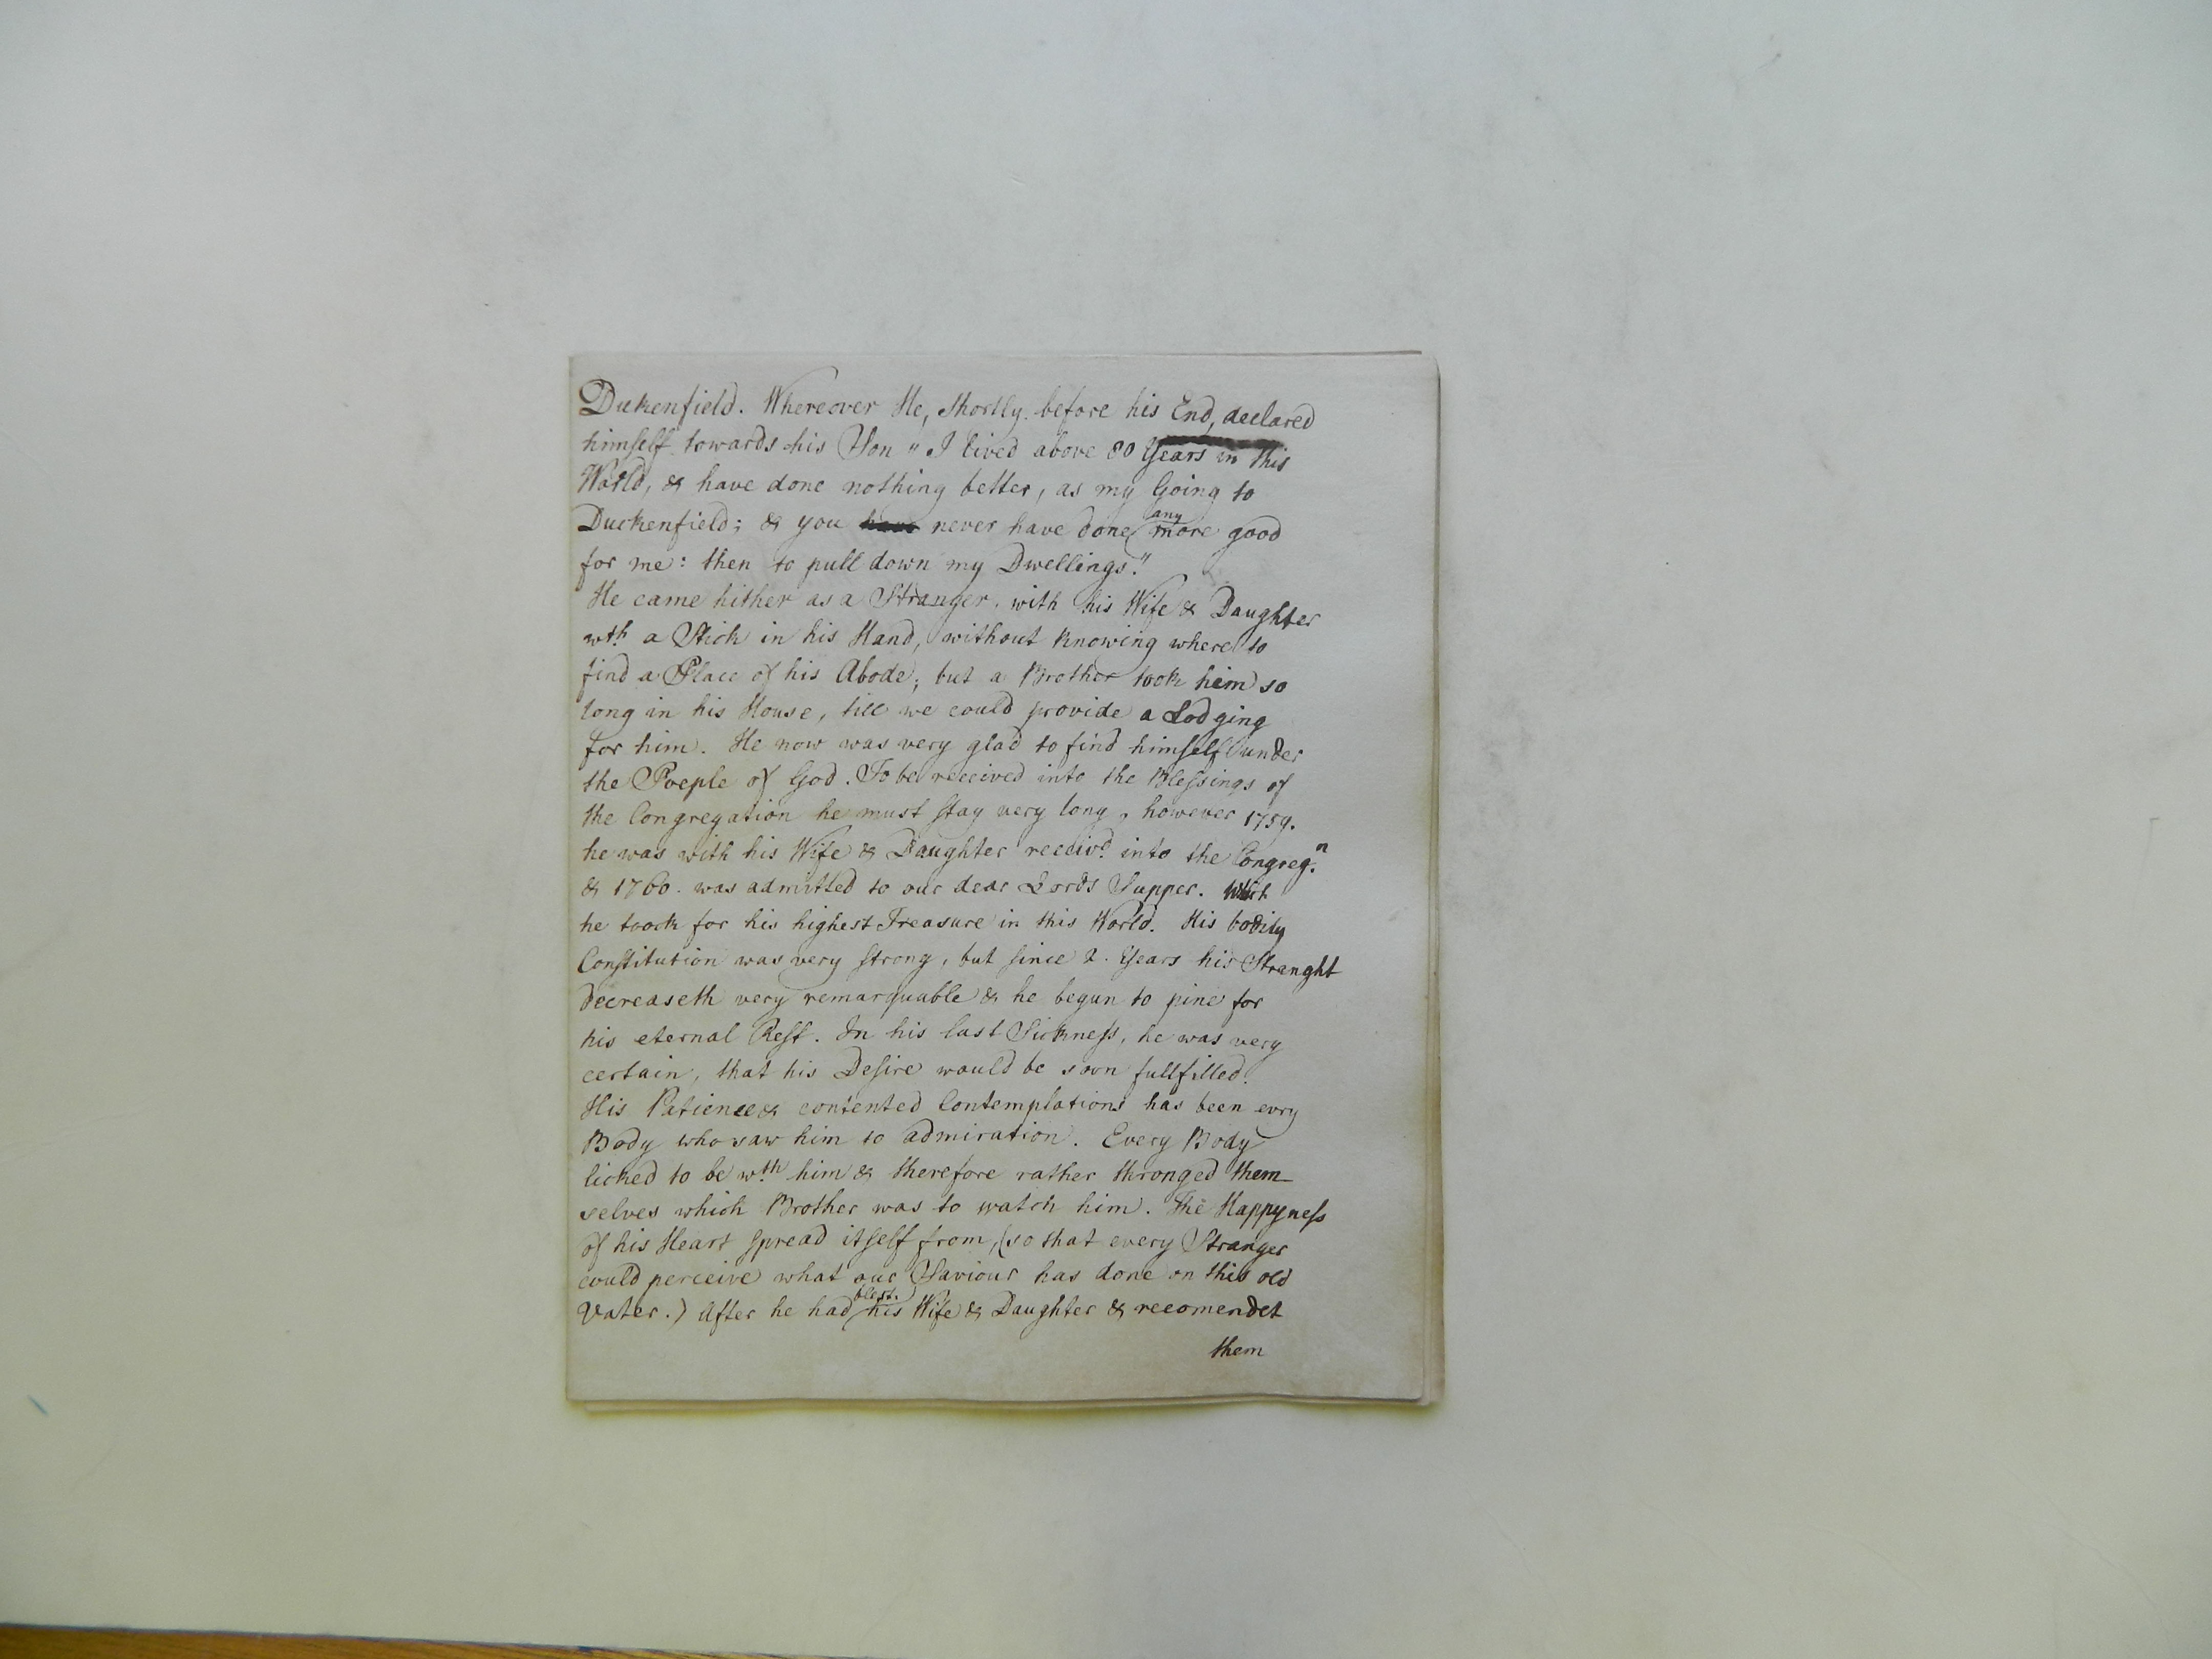 Duckenfield. Whereover He, shortly before his End, declared
himself towards his Son " I lived above 80 Years in this
World, & have done nothing better, as my Going to
Duckenfield; & you have never have done any more good
for me: then to pull down my Dwellings."
He came hither as a Stranger, with his Wife & Daughter
wth. a Stick in his Hand, without knowing where to
find a Place of his Abode; but a Brother took him so
long in his House, till we could provide a Lodging
for him. He now was very glad to find himself under
the Poeple of God. To be received into the Blessings of
the Congregation he must stay very long, however 1759.
he was with his Wife & Daughter receivd. into the Congreg.n
& 1760. was admitted to our dear Lords Supper. which
he took for his highest Treasure in this World. His bodily
Constitution was very strong, but since 2. Years his Stranght
decreaseth very remarquable & he begun to pine for
his eternal Rest. In his last Sickness, he was very
certain, that his Desire would be soon fullfilled.
His Patience & contented Contemplations has been evry
Body who saw him to admiration. Every Body
licked to be wth. him & therefore rather thronged them-
selves which Brother was to watch him. The Happyness
of his Heart spread itself from, (so that every Stranger
could perceive what our Saviour has done on this old
Vater.) After he had blest. his Wife & Daughter & recomendet
them